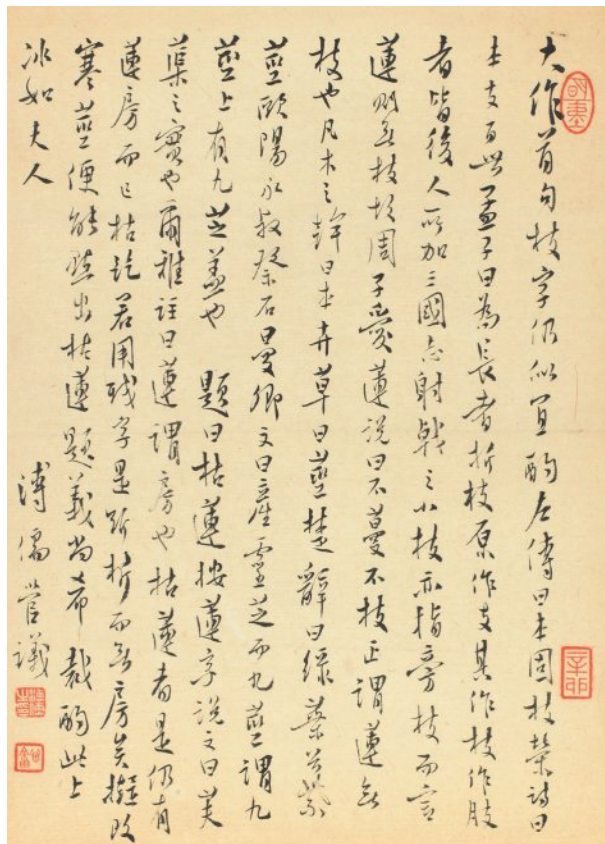 大作首句枝字仍似宜酌左傳曰本固枝榮詩曰
本支百世孟子曰為長者折枝原作支其作枝作肢
者皆後人所加三國志射戟之小枝亦指旁枝而言
蓮則無枝故周子愛蓮說曰不蔓不枝正謂蓮無
枝也凡木之幹曰本卉草曰莖楚辭曰綠葉兮紫
莖歐陽永叔祭石曼卿文曰產靈芝而九莖謂九
莖上有九芝蓋也 題曰枯蓮按蓮字說文曰芙
蕖之實也爾雅註曰蓮謂房也枯蓮者是仍有
蓮房而已枯訖若用殘字是斷折而無房矣擬改
寒莖便能點出枯蓮題義尚希 裁酌此上
冰如夫人
溥儒管議